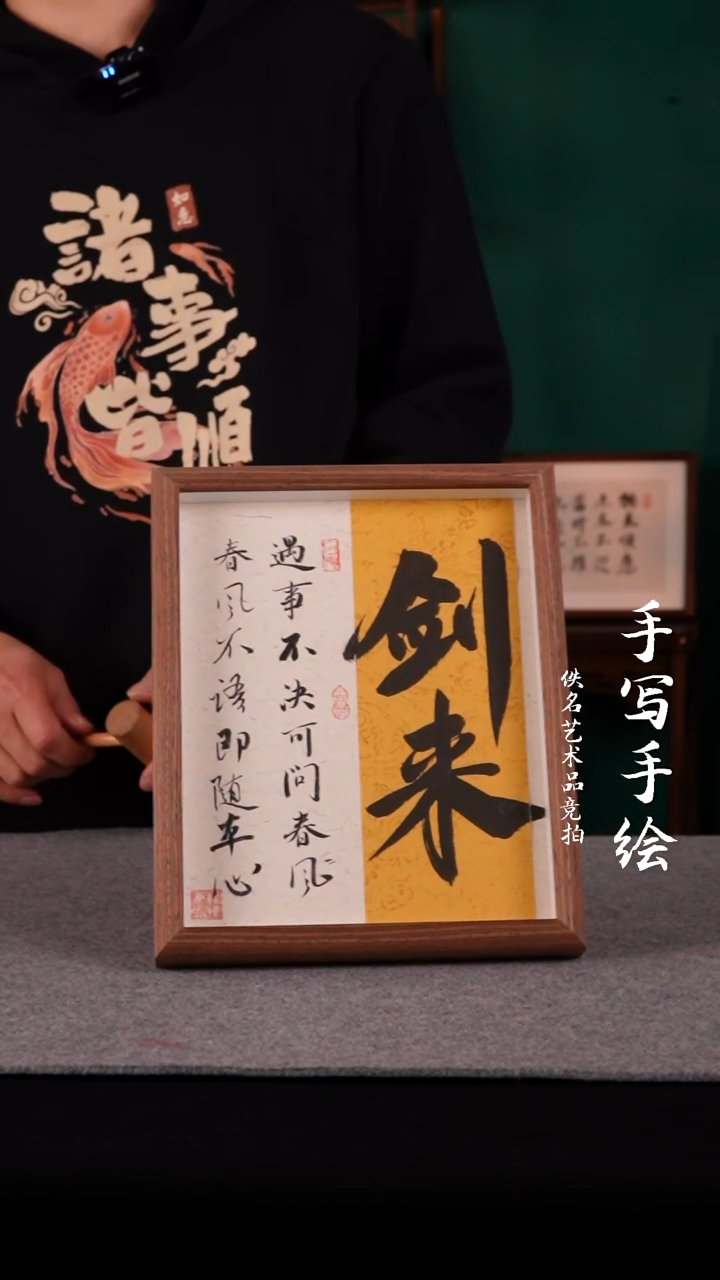 諸事皆順
如意
剑来
遇事不决可问春风
春风不语即随本心
手写手绘
佚名艺术品竞拍